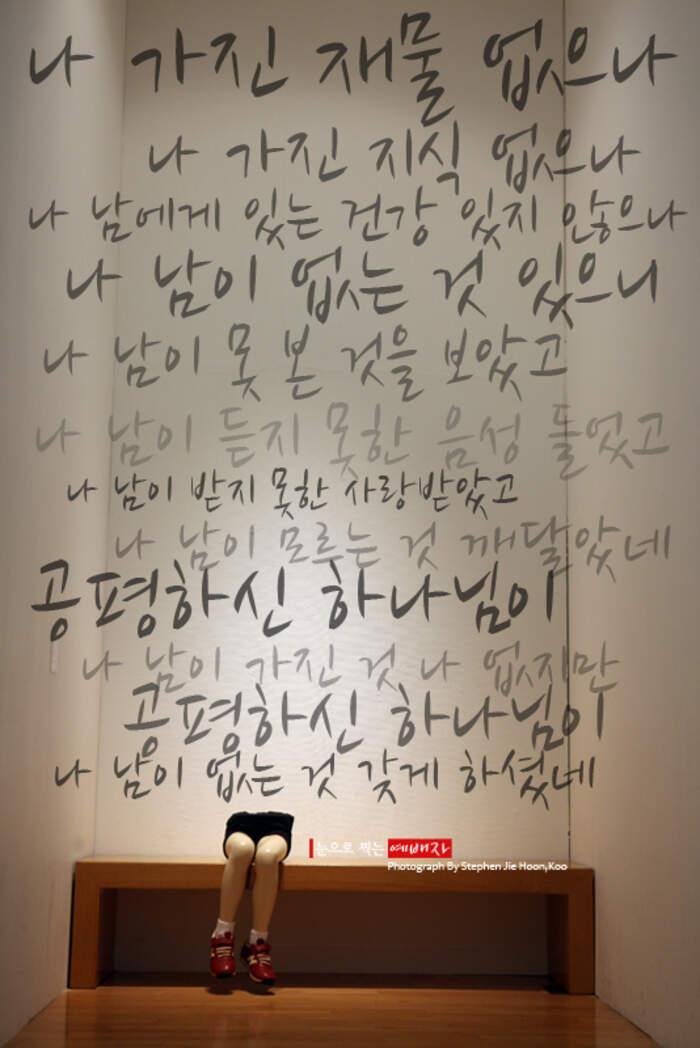 나 가진 재물 없으나
나 가진 지식 없으나
나 남에게 있는 건강 있지 않으나
나 남이 없는 것 있으니
나 남이 못 본 것을 보았고
나 남이 듣지 못한 음성 들었고
나 남이 받지 못한 사랑받았고
나 남이 모루는 것 깨달았네
공평하신 하나님이
나 남이 가진 것 나 없지만
공평하신 하나님이
나 남이 없는 것 갖게 하셨네
눈으로 찍는 예배자
Photograph By Stephen Jie Hoon,Koo